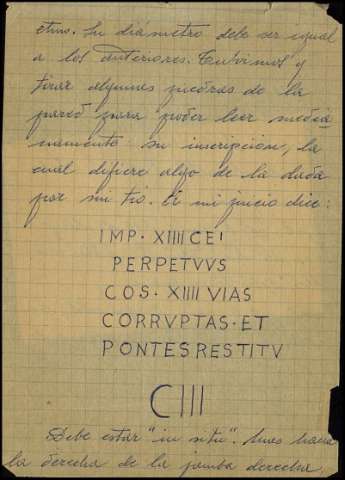 etmo. Su diámetro debe ser igual
a los anteriores. Tuvimos y
tirar algunas piedras de la
pared para poder leer media
namente su inscripción, la
cual difiere algo de la dada
por mi tío. A mi juicio dice:
IMP. XIIII CE
PERPETVVS
COS. XIIII VIAS
CORRVPTAS. ET
PONTES RESTITV
CIII
Debe estar "in situ". Unos hacia
la derecha de la jamba derecha.